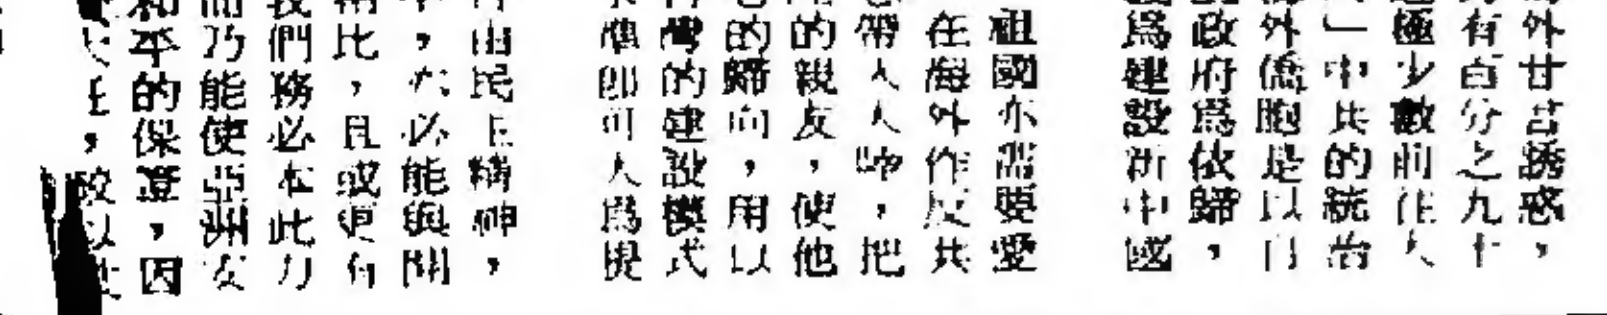 外甘言誘惑，
有百分之九十
極少數前往大
」中共的統治
外僑胞是以自
政府爲依歸，
爲建設新中國
祖國亦需要愛
在海外作反共
帶人人師，把
的親友，使他
的歸向，用以
灣的建設模式
準即可人爲提
由民主精神，
，亦必能與開
比，且或更有
我們務必本此力
而乃能使亞洲安
和平的保證，因
任，較以